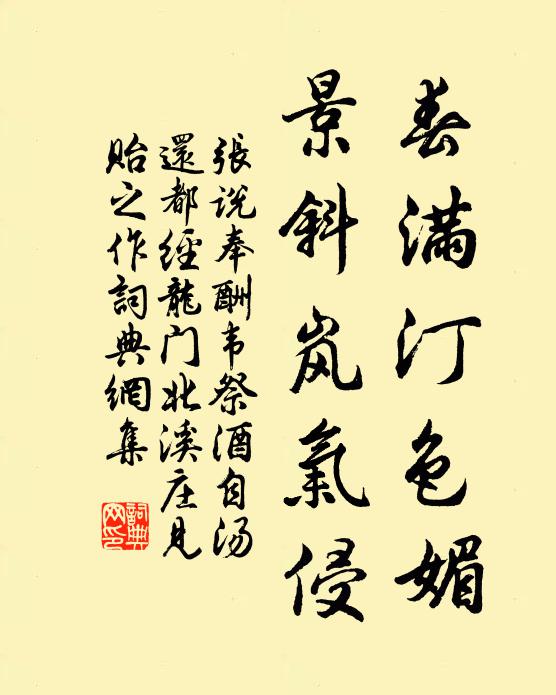 春满汀色媚
景斜岚氣侵
張说奉酬韦祭酒自汤
還都經龍门北溪庄见
贻之作詞典網集
詞典网印